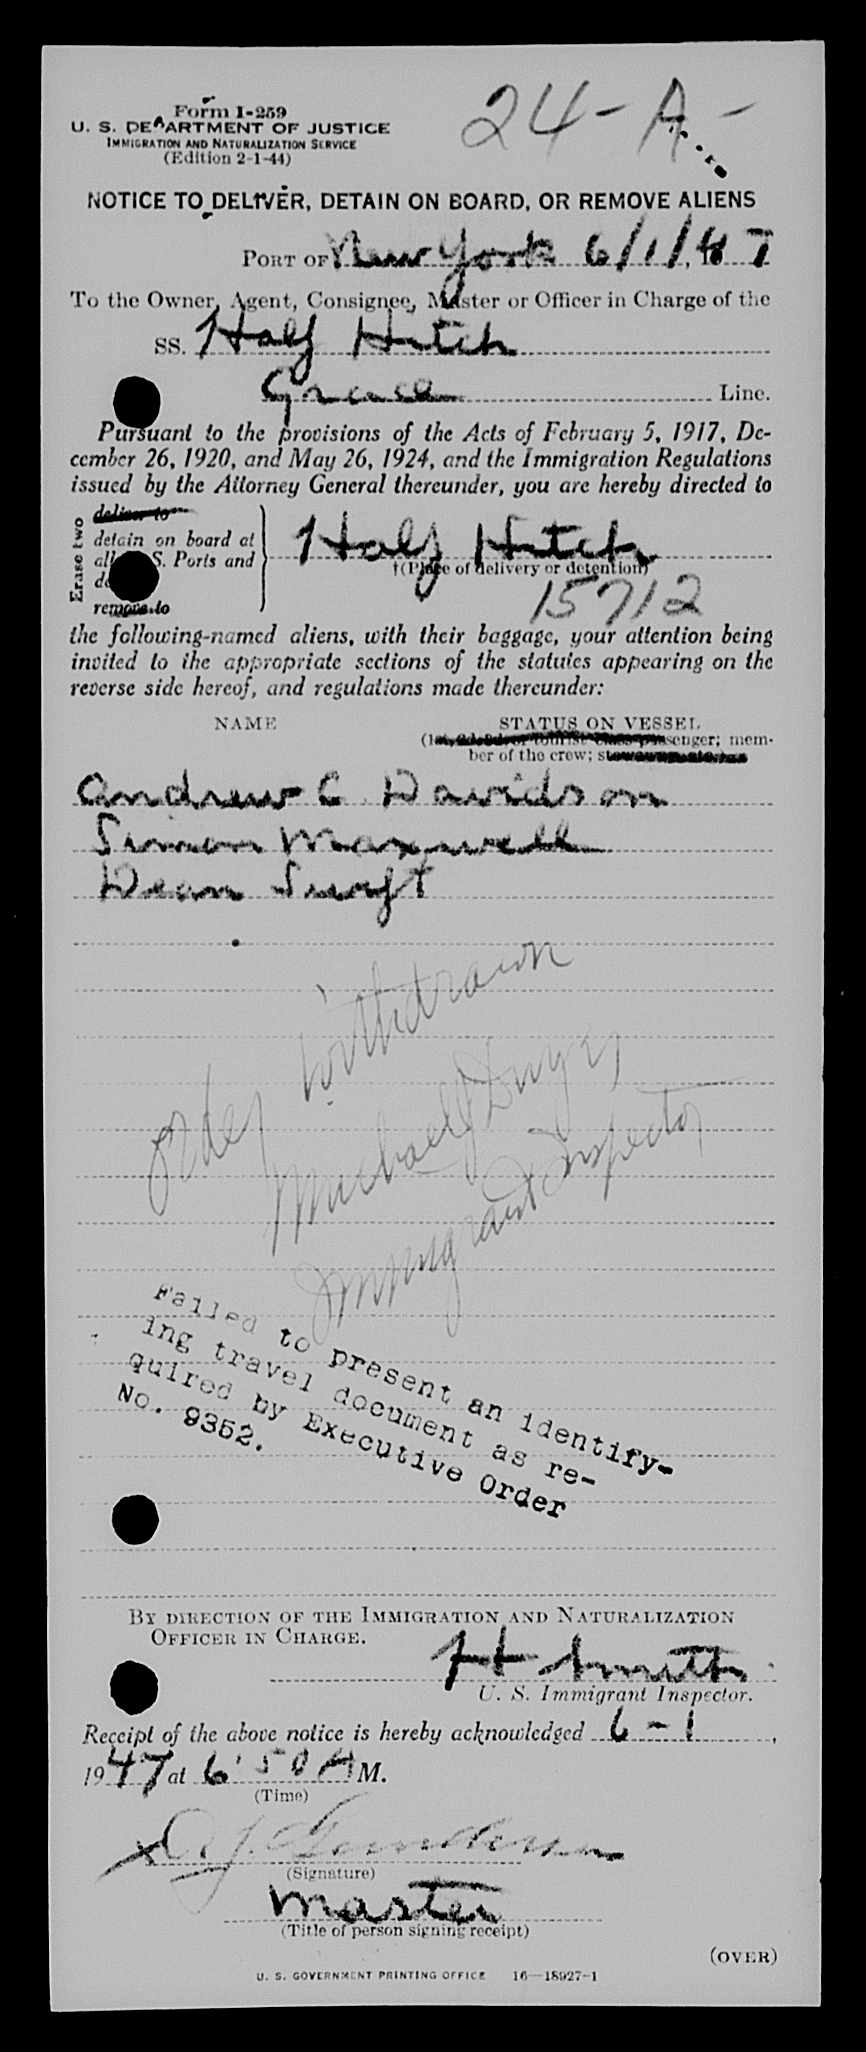 Form I-259
24-A-
U. S. DEPARTMENT OF JUSTICE
IMMIGRATION AND NATURALIZATION SERVICE
(Edition 2-1-44)
NOTICE TO DELIVER, DETAIN ON BOARD, OR REMOVE ALIENS
PORT OF New York 6/1/, 1947
To the Owner, Agent, Consignee, Master or Officer in Charge of the
SS. Half Hitch
Grace Line.
Pursuant to the provisions of the Acts of February 5, 1917, De-
cember 26, 1920, and May 26, 1924, and the Immigration Regulations
issued by the Attorney General thereunder, you are hereby directed to
Erase two
deliver to
detain on board at
all U. S. Ports and
remove to
Half Hitch
†(Place of delivery or detention)
15712
the following-named aliens, with their baggage, your attention being
invited to the appropriate sections of the statutes appearing on the
reverse side hereof, and regulations made thereunder:
NAME STATUS ON VESSEL
(1st, 2d, 3d, or tourist class passenger; mem-
ber of the crew; stowaway
Andrew C Davidson
Simon Maxwell
Dean Swift
Order withdrawn
Michael J Dwyer
Immigrant Inspector
Failed to present an identify-
ing travel document as re-
quired by Executive Order
No. 9352.
BY DIRECTION OF THE IMMIGRATION AND NATURALIZATION
OFFICER IN CHARGE.
H Smith
U. S. Immigrant Inspector.
Receipt of the above notice is hereby acknowledged 6-1,
1947 at 6:50 A M.
(Time)
X
(Signature)
Master
(Title of person signing receipt)
(OVER)
U. S. GOVERNMENT PRINTING OFFICE 16—18927-1